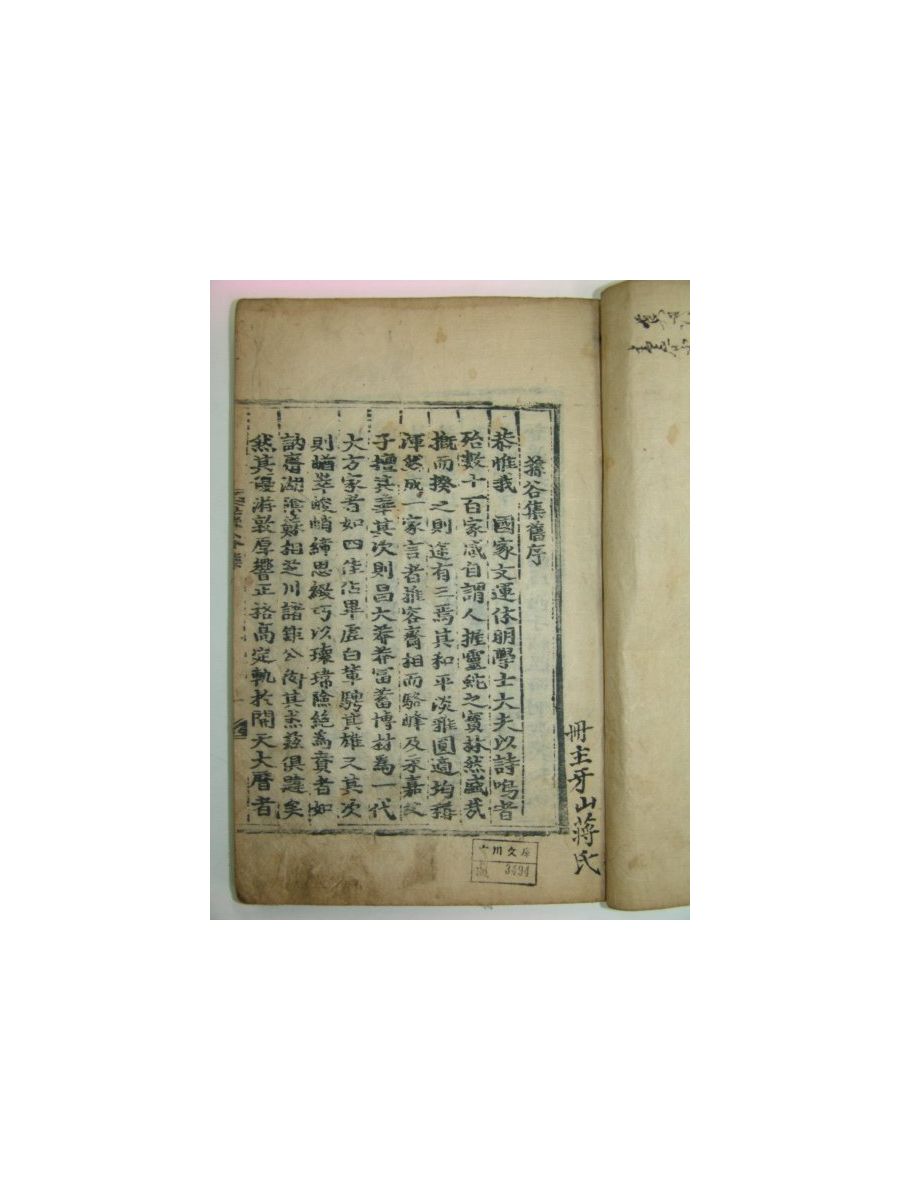 蓀谷集舊序
恭惟我 國家文運休明學士大夫以詩鳴者
殆數十百家咸自謂人握靈蛇之寶林然盛哉
槩而揆之則途有三焉其和平淡雅圓適均稱
渾然成一家言者推容齋相而駱峰及永嘉父
子擅其華其次則昌大莽莽富蓄博材為一代
大方家者如四佳佔畢虛白輩騁其雄又其次
則崷崒峻峭締思緻巧以瓌瑋險絶為貴者如
訥齋湖陰蘇相芝川諸鉅公
然其優游敦厚響正格高定軌於開天大曆者
冊主牙山蔣氏
文庫
3494